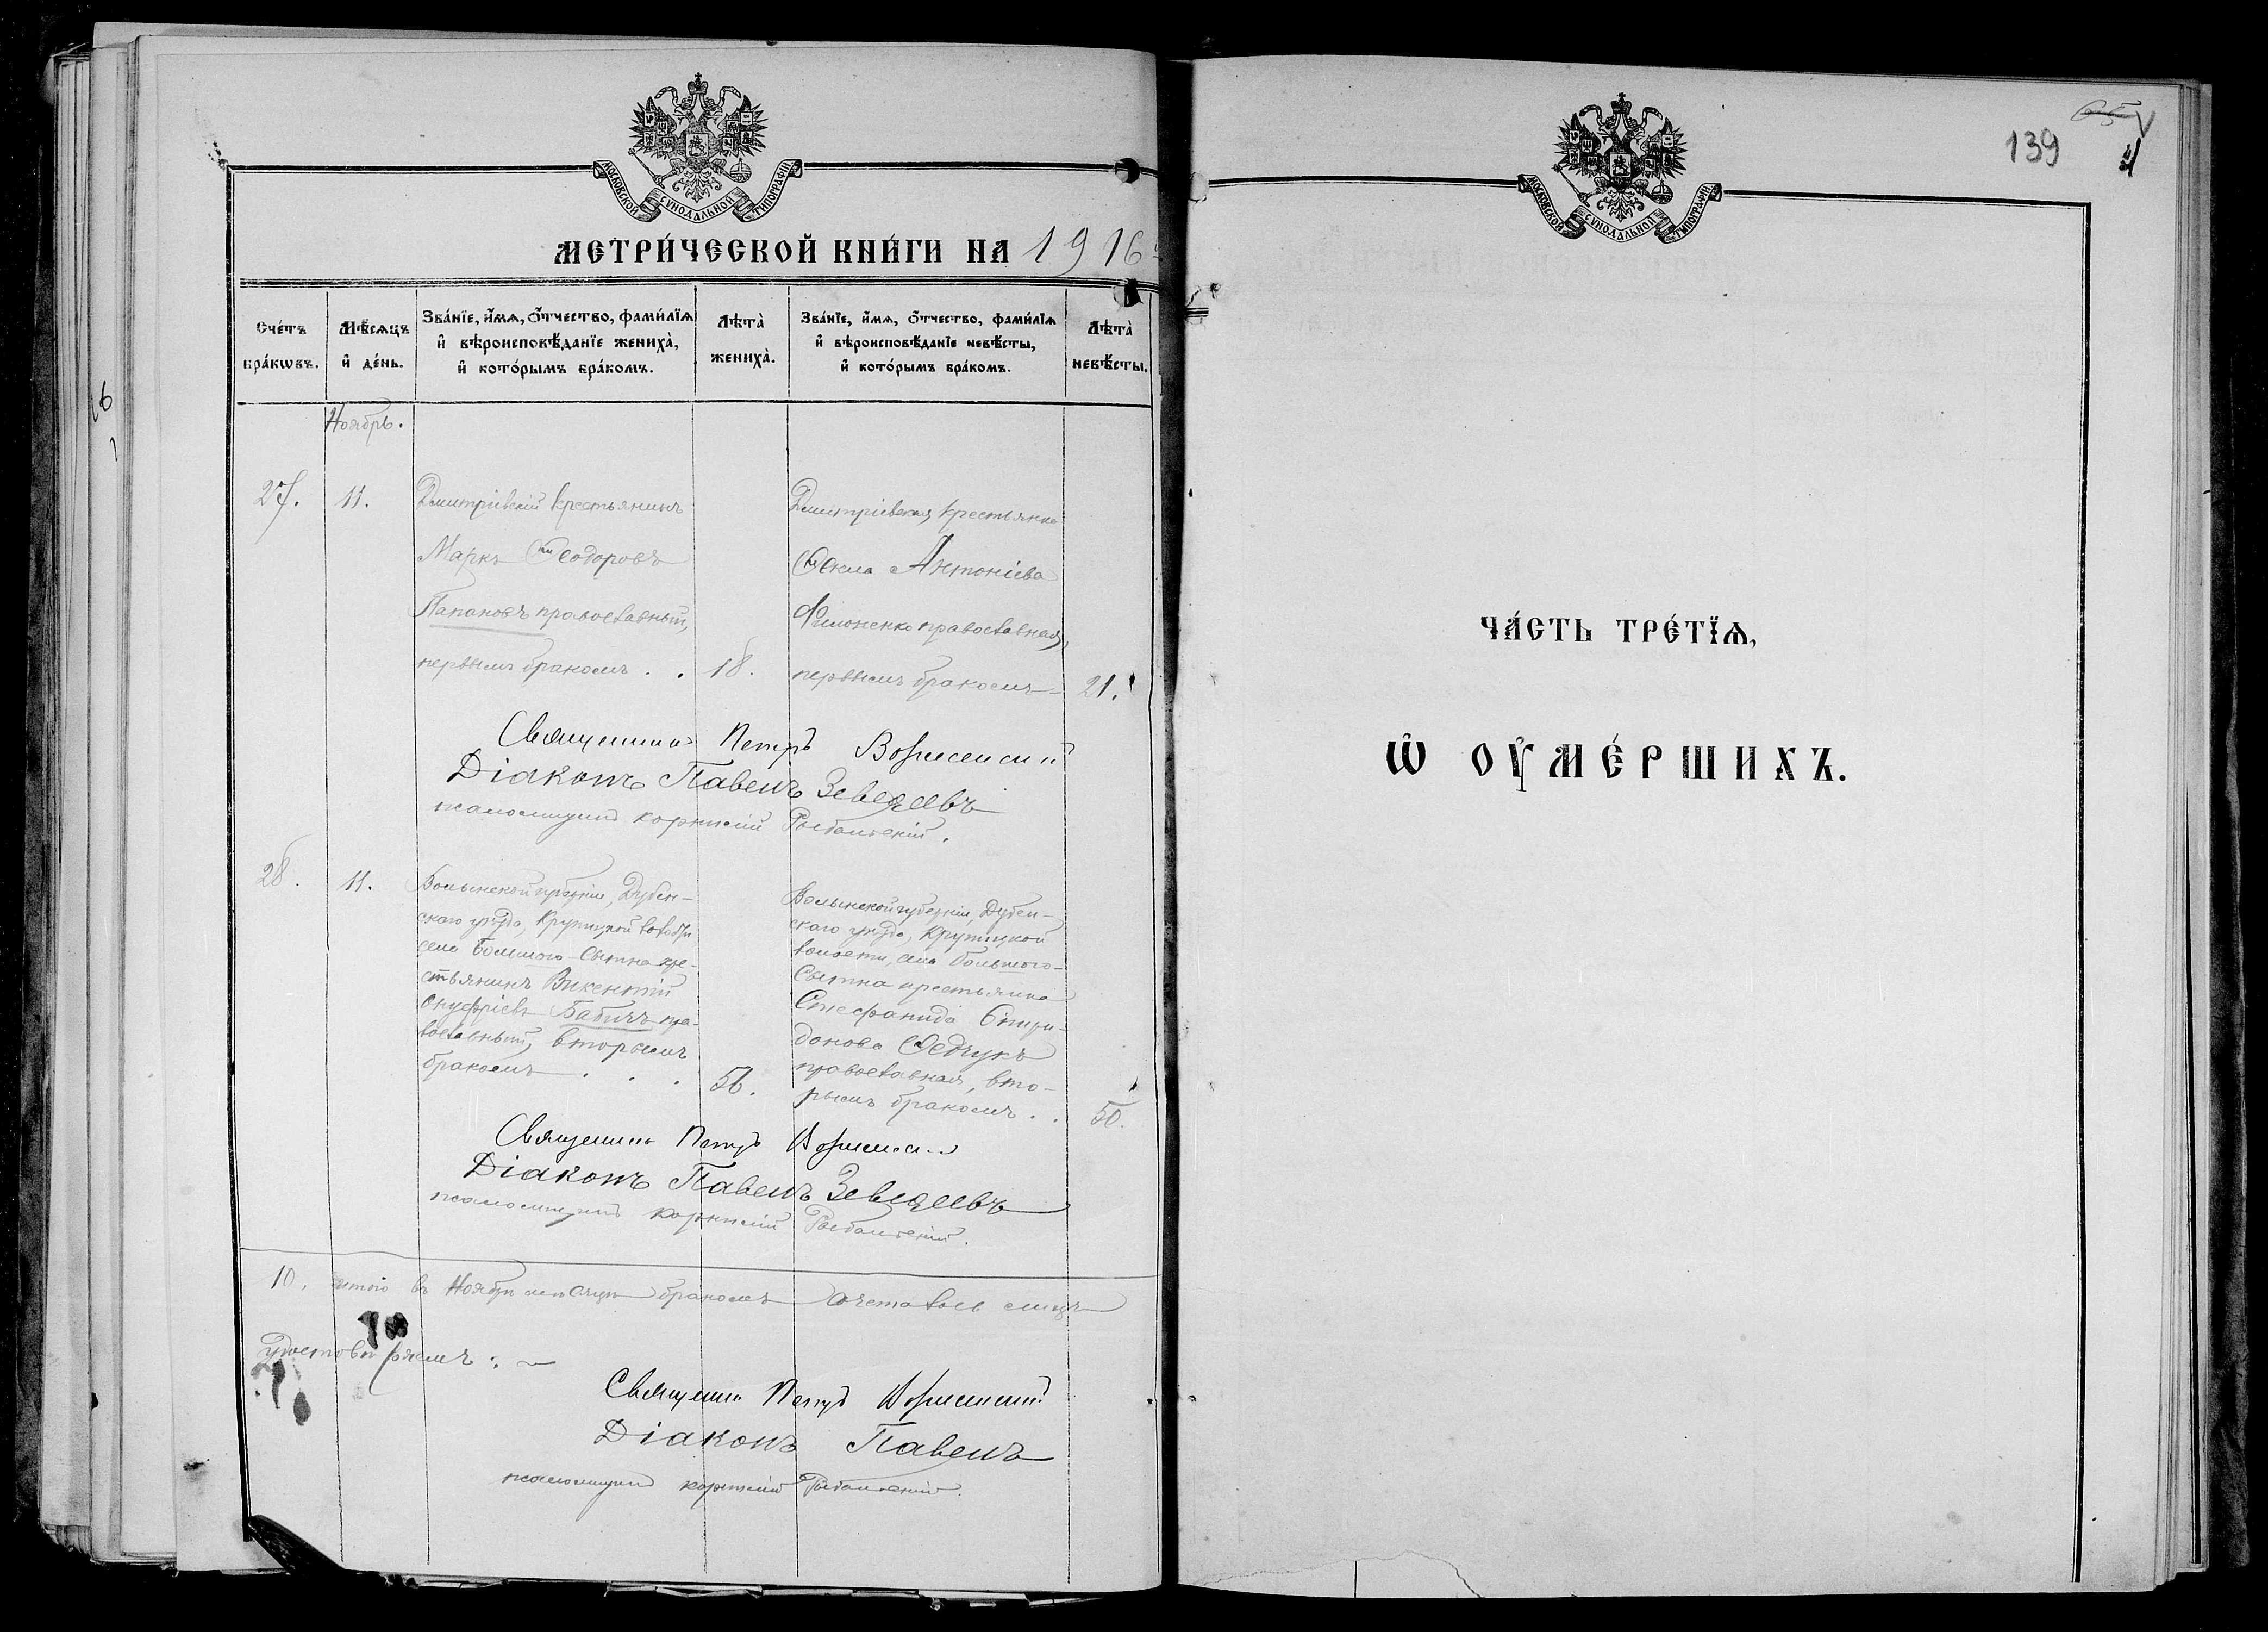 МОСКОВСКОЙ СѴНОДАЛЬНОЙ ТИПОГРАФІИ
МЕТРИ́ЧЕСКОЙ КНИ́ГИ НА 1916
Сче́тъ бра́кωвъ.
Мѣ́сяцъ и҆ де́нь.
Зва́нїе, и҆́мѧ, ѻ҆́тчество, фами́лїѧ и҆ вѣроисповѣ́данїе жениха̀, и҆ кото́рымъ бра́комъ.
Лѣта̀ жениха̀.
Зва́нїе, и҆́мѧ, ѻ҆́тчество, фами́лїѧ и҆ вѣроисповѣ́данїе невѣ́сты, и҆ кото́рымъ бра́комъ.
Лѣта̀ невѣ́сты.
Ноябрь.
27.
11.
Дмитріевскій крестьянинъ
Маркъ Ѳеодоровъ
Папановъ православный,
первымъ бракомъ . .
18.
Дмитріевская крестьянка
Ѳекла Антоніева
Филоненко православная,
первымъ бракомъ
21.
Священникъ Петръ
Діаконъ Павелъ Зеведеевъ
псаломщикъ Корнилій
28.
11.
Волынской губерніи, Дубен-
скаго уѣзда, Крупецкой волости
села Большого-Сытна кре-
стьянинъ Викентій
Онуфріевъ Бабичъ пра-
вославный, вторымъ
бракомъ . . .
56.
Волынской губерніи, Дубен-
скаго уѣзда, Крупецкой
волости, села Большого-
Сытна крестьянка
Стефанида Спири-
донова Ѳедчукъ
православная, вто-
рымъ бракомъ . .
50.
Священникъ Петръ
Діаконъ Павелъ Зеведеевъ
псаломщикъ Корнилій
10. итого въ Ноябрѣ мѣсяцѣ бракомъ
удостовѣряемъ: ~
Священникъ Петръ
Діаконъ Павелъ
псаломщикъ Корнилій
139
65
МОСКОВСКОЙ СѴНОДАЛЬНОЙ ТИПОГРАФІИ
ЧА́СТЬ ТРЕ́ТЇѦ,
Ѽ ОУ҆МЕ́РШИХЪ.